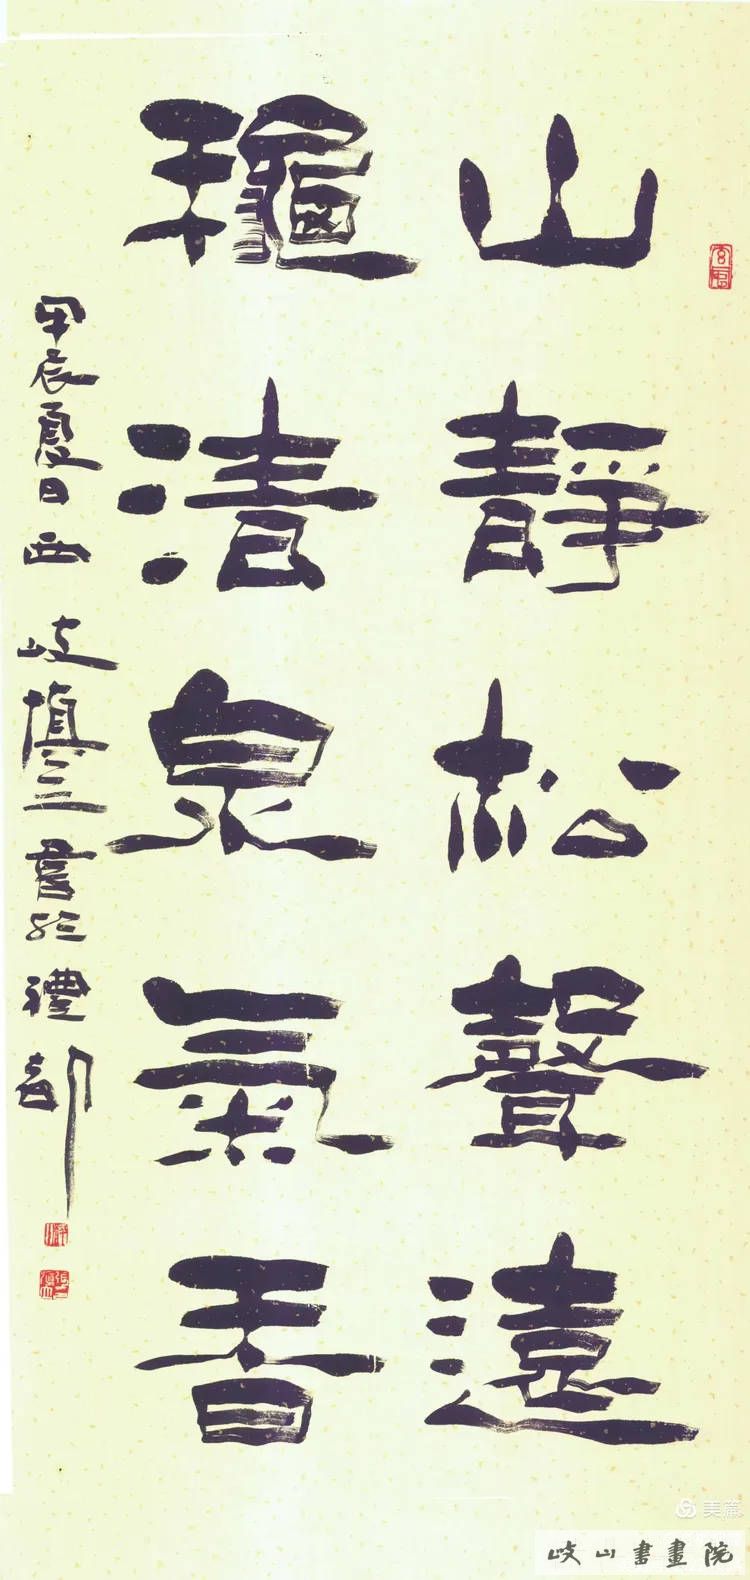 山靜松聲遠
龝清泉氣香
甲辰夏日西岐慎書於禮都
美篇
岐山書畫院